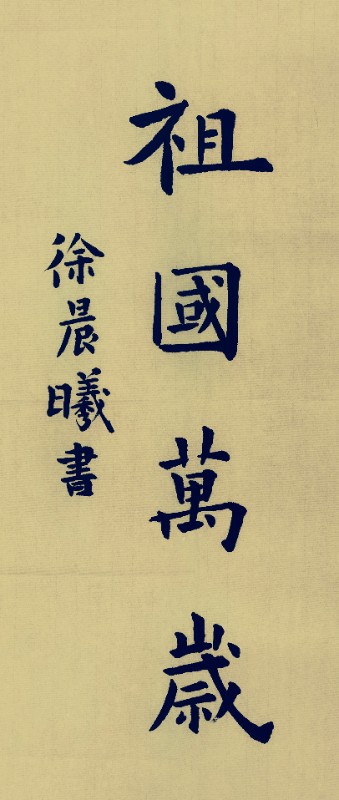 祖國萬歲
徐晨曦書